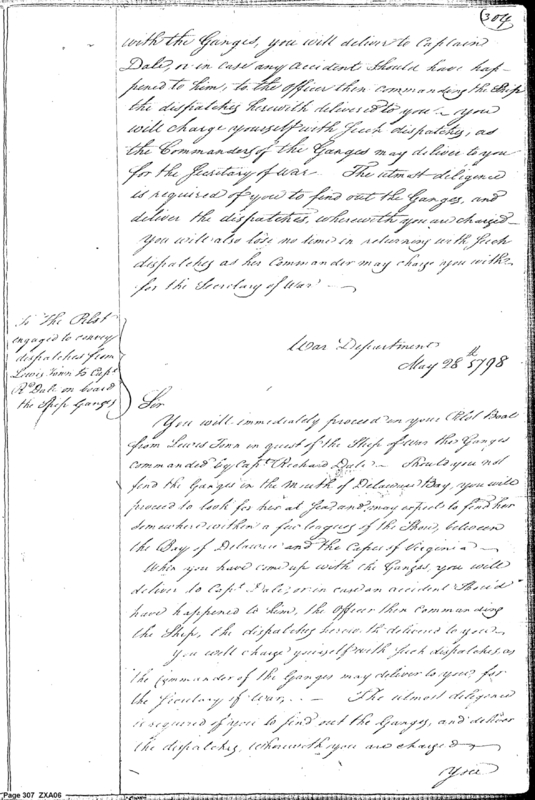 304
with the Ganges, you will deliver to Captain
Dale, or in case any accident should have hap-
pened to him, to the officer then commanding the Ship
the dispatches herewith delivered to you - you
will charge yourself with such dispatches, as
the Commanders of the Ganges may deliver to you
for the Secretary of War - The utmost diligence
is required of you to find out the Ganges, and
deliver the dispatches, wherewith you are charged -
You will also lose no time in returning with such
dispatches as her Commander may charge you with
for the Secretary of War -
To The Pilot
engaged to convey
dispatches from
Lewis Town to Capt
Rd Dale on board
the Ship Ganges
War Department
May 28th 1798
Sir
You will immediately proceed in your Pilot Boat
from Lewis Town in quest of the Ship of War the Ganges
commanded by Capt. Richard Dale - Should you not
find the Ganges in the Mouth of Delaware Bay, you will
proceed to look for her at Sea and may expect to find her
somewhere within a few leagues of the Shore, between
the Bay of Delaware and the Capes of Virginia -
When you have come up with the Ganges, you will
deliver to Capt. Dale; or in case an accident Should
have happened to him, the officer then commanding
the Ship, the dispatches herewith delivered to you -
You will charge yourself with such dispatches as
the Commander of the Ganges may deliver to you for
the Secretary of War, - The utmost diligence
is required of you to find out the Ganges, and deliver
the dispatches, wherewith you are charged -
You
Page 307 ZXA06